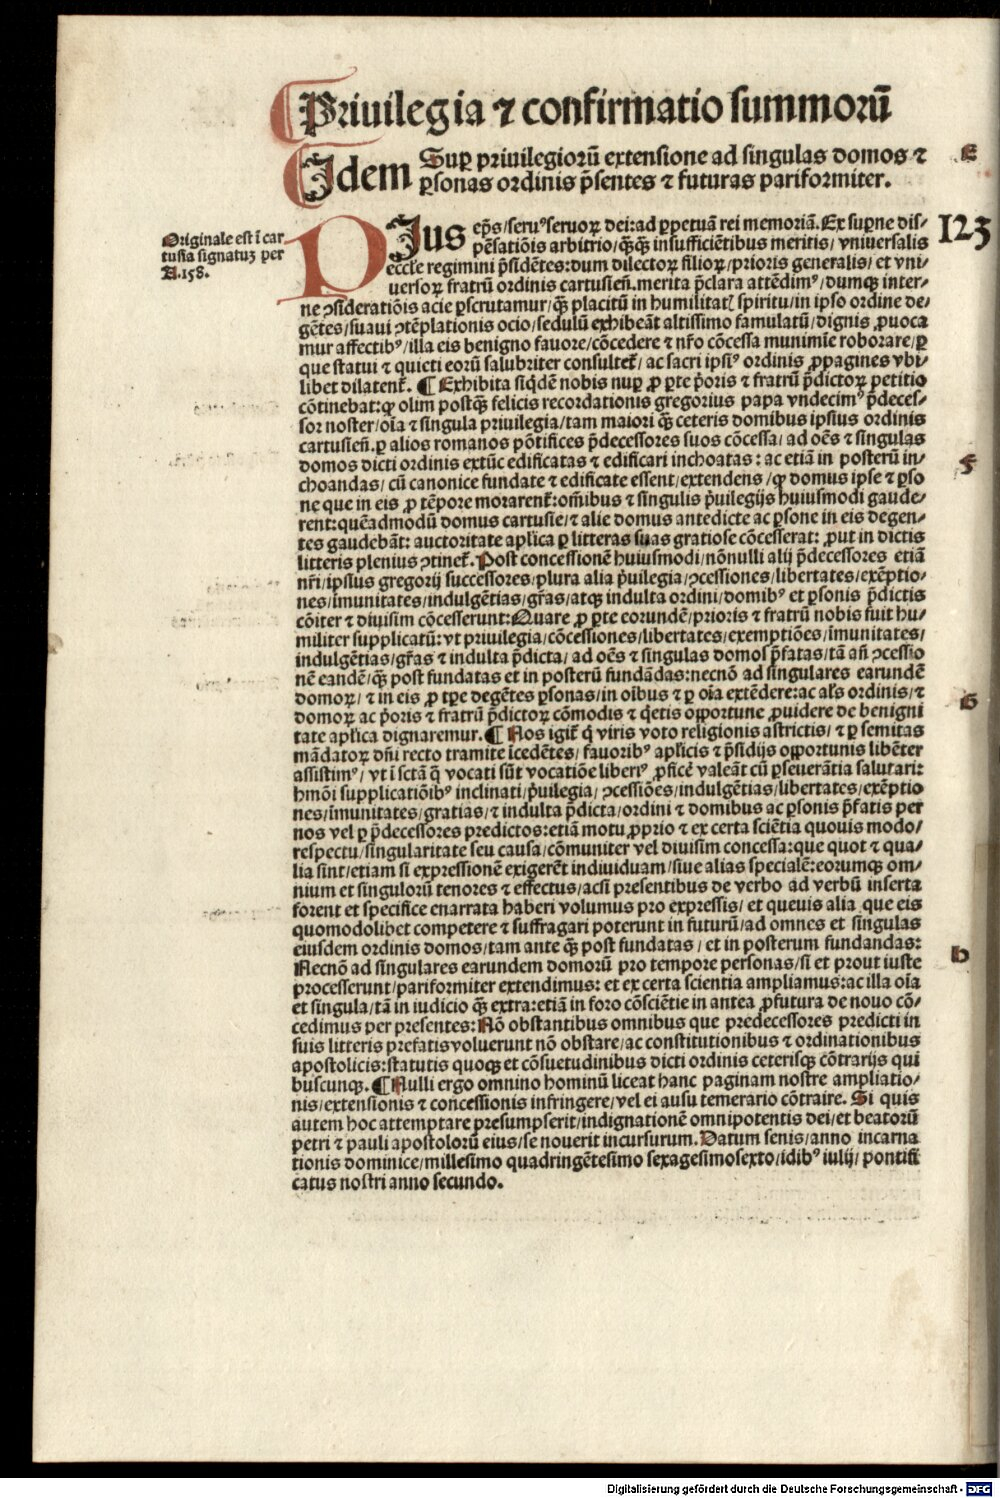 Priuilegia ⁊ confirmatio summorū
Idem Suꝑ priuilegiorū extensione ad singulas domos ⁊
ꝑsonas ordinis p̄sentes ⁊ futuras pariformiter.
E
Originale est ī car
tusia signatuꝫ per
A.158.
123
PIus ep̄s/seruꝰseruoꝝ dei:ad ꝑpetuā rei memoriā.Ex suꝑne dis/
pēsatiōis arbitrio/qꝫ̄qꝫ̄ insufficiētibus meritis/vniuersalis
eccl̄e regimini p̄sidētes:dum dilectoꝝ filioꝝ/prioris generalis/et vni/
uersoꝝ fratrū ordinis cartusieñ.merita p̄clara attēdimꝰ/dumqꝫ inter/
ne ꝯsiderationis acie ꝑscrutamur/qꝫ̄ placitū in humilitatꝭ spiritu/in ipso ordine de/
gētes/suaui ꝯtēplationis ocio/sedulū exhibeāt altissimo famulatū/dignis ꝓuoca
mur affectibꝰ/illa eis benigno fauore/cōcedere ⁊ nr̄o cōcessa munimīe roborare/ꝑ
que statui ⁊ quieti eorū salubriter consultet̄/ac sacri ipsiꝰ ordinis ꝓpagines vbi/
libet dilatent̄. ¶ Exhibita siq̇dē nobis nuꝑ ꝓ ꝑte p̄oris ⁊ fratrū p̄dictoꝝ petitio
cōtinebat:ꝙ olim postqꝫ̄ felicis recordationis gregorius papa vndecimꝰ p̄deces/
sor noster/oīa ⁊ singula priuilegia/tam maiori qꝫ̄ ceteris domibus ipsius ordinis
cartusieñ.ꝑ alios romanos pōtifices p̄decessores suos cōcessa/ad oēs ⁊ singulas
domos dicti ordinis extūc edificatas ⁊ edificari inchoatas: ac etiā in posterū in/
choandas/cū canonice fundate ⁊ edificate essent/extendens/ꝙ domus ipse ⁊ ꝑso
5
ne que in eis ꝓ tēpore morarent̄:om̄ibus ⁊ singulis p̄uilegijs huiusmodi gaude/
rent:quēadmodū domus cartusie/⁊ alie domus antedicte ac ꝑsone in eis degen/
tes gaudebāt: auctoritate apl̄ica ꝑ litteras suas gratiose cōcesserat: ꝓut in dictis
litteris plenius ꝯtinet̄.Post concessionē huiusmodi/nōnulli alij p̄decessores etiā
nr̄i/ipsius gregorij successores/plura alia p̄uilegia/ꝯcessiones/libertates/exēptio/
nes/īmunitates/indulgētias/gr̄as/atqꝫ indulta ordini/domibꝰ et ꝑsonis p̄dictis
cōiter ⁊ diuisim cōcesserunt:Quare ꝓ ꝑte eorundē/prioris ⁊ fratrū nobis fuit hu/
militer supplicatū:vt priuilegia/cōcessiones/libertates/exemptiōes/īmunitates/
indulgētias/gr̄as ⁊ indulta p̄dicta/ad oēs ⁊ singulas domos p̄fatas/tā añ ꝯcessio
nē eandē/qꝫ̄ post fundatas et in posterū fundādas:necnō ad singulares earundē
domoꝝ/⁊ in eis ꝓ tꝑe degētes ꝑsonas/in oībus ⁊ ꝑ oīa extēdere:ac al̄s ordinis/⁊
6
domoꝝ ac p̄oris ⁊ fratrū p̄dictoꝝ cōmodis ⁊ q̇etis oꝑportune ꝓuidere de benigni
tate apl̄ica dignaremur.¶ Nos igit̄ q̇ viris voto religionis astrictis/⁊ ꝑ semitas
mādatoꝝ dn̄i recto tramite īcedētes/fauoribꝰ apl̄icis ⁊ p̄sidijs oꝑportunis libēter
assistimꝰ/vt ī sctā q̇ vocati sūt vocatiōe liberiꝰ ꝓficē valeāt cū ꝑseuerātia salutari:
hmōi supplicatiōibꝰ inclinati/p̄uilegia/ꝯcessiōes/indulgētias/libertates/exēptio
nes/īmunitates/gratias/⁊ indulta p̄dicta/ordini ⁊ domibus ac ꝑsonis p̄fatis per
nos vel ꝑ p̄decessores predictos:etiā motu ꝓprio ⁊ ex certa sciētia quouis modo/
respectu/singularitate seu causa/cōmuniter vel diuisim concessa:que quot ⁊ qua/
lia sint/etiam si expressionē exigerēt indiuiduam/siue alias specialē:eorumqꝫ om/
nium et singulorū tenores ⁊ effectus/acsi presentibus de verbo ad verbū inserta
forent et specifice enarrata haberi volumus pro expressis/ et queuis alia que eis
quomodolibet competere ⁊ suffragari poterunt in futurū/ad omnes et singulas
eiusdem ordinis domos/tam ante qꝫ̄ post fundatas/et in posterum fundandas:
Necnō ad singulares earundem domorū pro tempore personas/si et prout iuste
b
processerunt/pariformiter extendimus: et ex certa scientia ampliamus:ac illa oīa
et singula/tā in iudicio qꝫ̄ extra:etiā in foro cōsciētie in antea ꝓfutura de nouo cō/
cedimus per presentes:Nō obstantibus omnibus que predecessores predicti in
suis litteris prefatis voluerunt nō obstare/ac constitutionibus ⁊ ordinationibus
apostolicis:statutis quoqꝫ et cōsuetudinibus dicti ordinis ceterisqꝫ cōtrarijs qui
buscunqꝫ.¶ Nulli ergo omnino hominū liceat hanc paginam nostre ampliatio/
nis/extensionis ⁊ concessionis infringere/vel ei ausu temerario cōtraire. Si quis
autem hoc attemptare presumpserit/indignationē omnipotentis dei/et beatorū
petri ⁊ pauli apostolorū eius/se nouerit incursurum.Datum senis/anno incarna
tionis dominice/millesimo quadringētesimo sexagesimosexto/idibꝰ iulij/pontifi
catus nostri anno secundo.
Digitalisierung gefördert durch die Deutsche Forschungsgemeinschaft - DFG